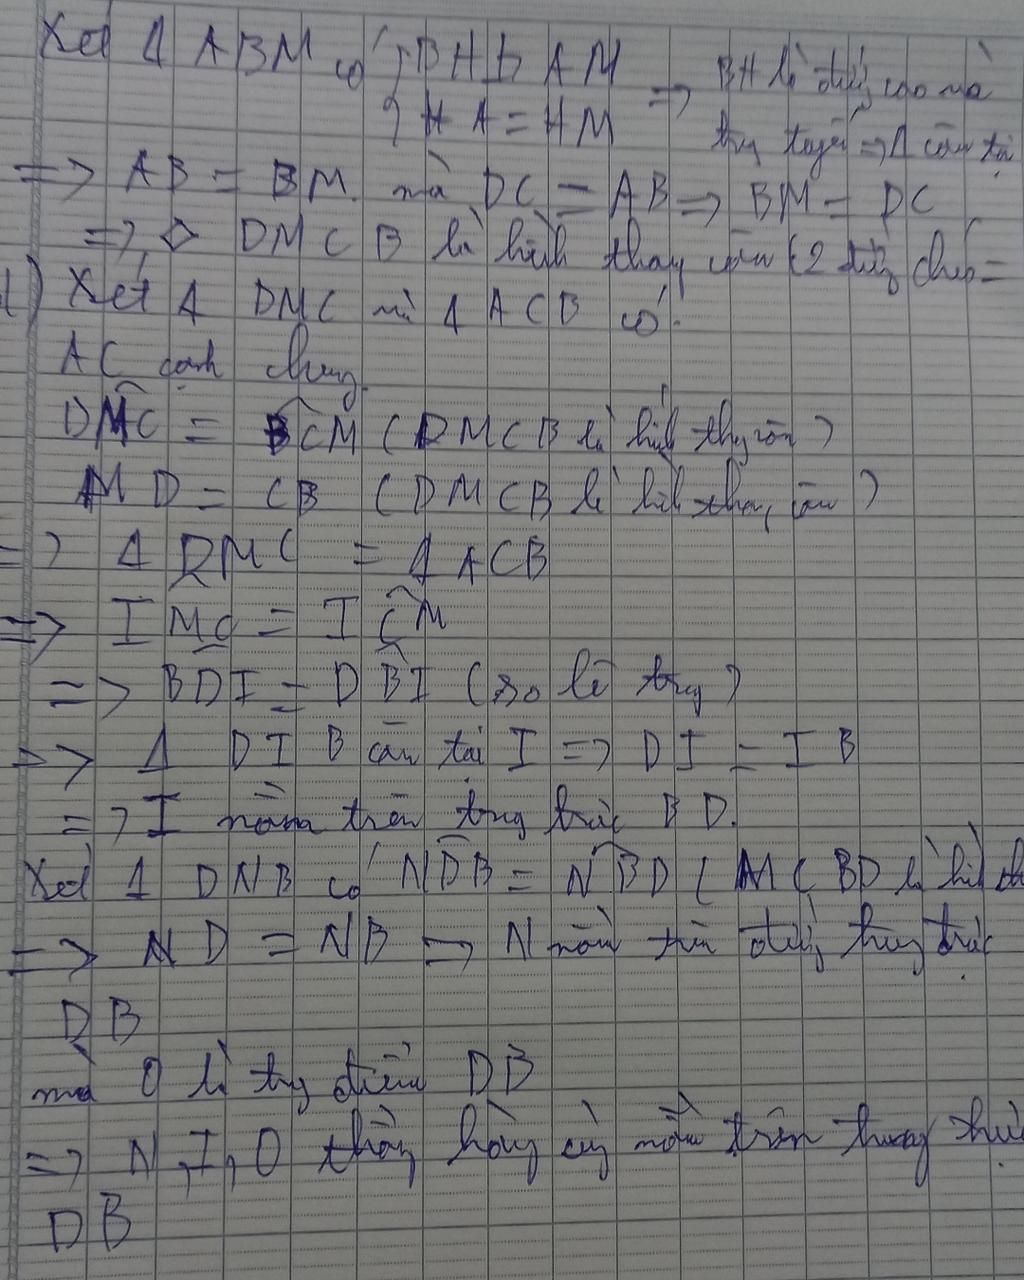 Xét Δ ABM có { BH ⊥ AM => BH là đường cao mà
{ HA = HM trung tuyến => Δ cân tại
=> AB = BM mà DC = AB => BM = DC
=> ◇ DMCB là hình thang cân (2 đường chéo =
d) Xét Δ DMC và Δ ACB có:
AC cạnh chung
DMC = BCM (DMCB là hình thang cân)
MD = CB (DMCB là hình thang cân)
=> Δ DMC = Δ ACB
=> IMC = ICM
=> BDI = DBI (so le trg)
=> Δ DIB cân tại I => DI = IB
=> I nằm trên trung trực BD.
Xét Δ DNB có NDB = NBD (MCBD là hình th
=> ND = NB => N nằm trên đường trung trực
DB
mà O là trg điểm DB
=> N, I, O thẳng hàng cùng nằm trên trung trực
DB